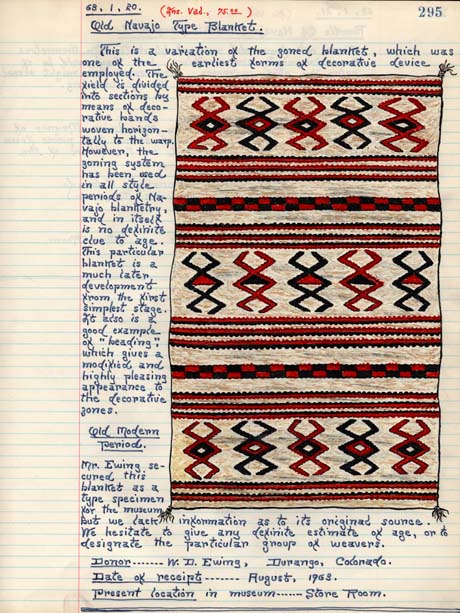 68.1.20. (Ins. Val., 75.00)
295.
Old Navajo Type Blanket.
This is a variation of the zoned blanket, which was
one of the earliest forms of decorative device
employed. The
field is divided
into sections by
means of deco-
rative bands
woven horizon-
tally to the warp.
However, the
zoning system
has been used
in all style
periods of Na-
vajo blanketry,
and in itself
is no definite
clue to age.
This particular
blanket is a
much later
development
from the first
simplest stage.
It also is a
good example
of "beading",
which gives a
modified and
highly pleasing
appearance to
the decorative
zones.
Old Modern
Period.
Mr. Ewing se-
cured this
blanket as a
type specimen
for the museum,
but we lack information as to its original source.
We hesitate to give any definite estimate of age, or to
designate the particular group of weavers.
Donor------- W. D. Ewing, Durango, Colorado.
Date of receipt------- August, 1968.
Present location in museum----- Store Room.